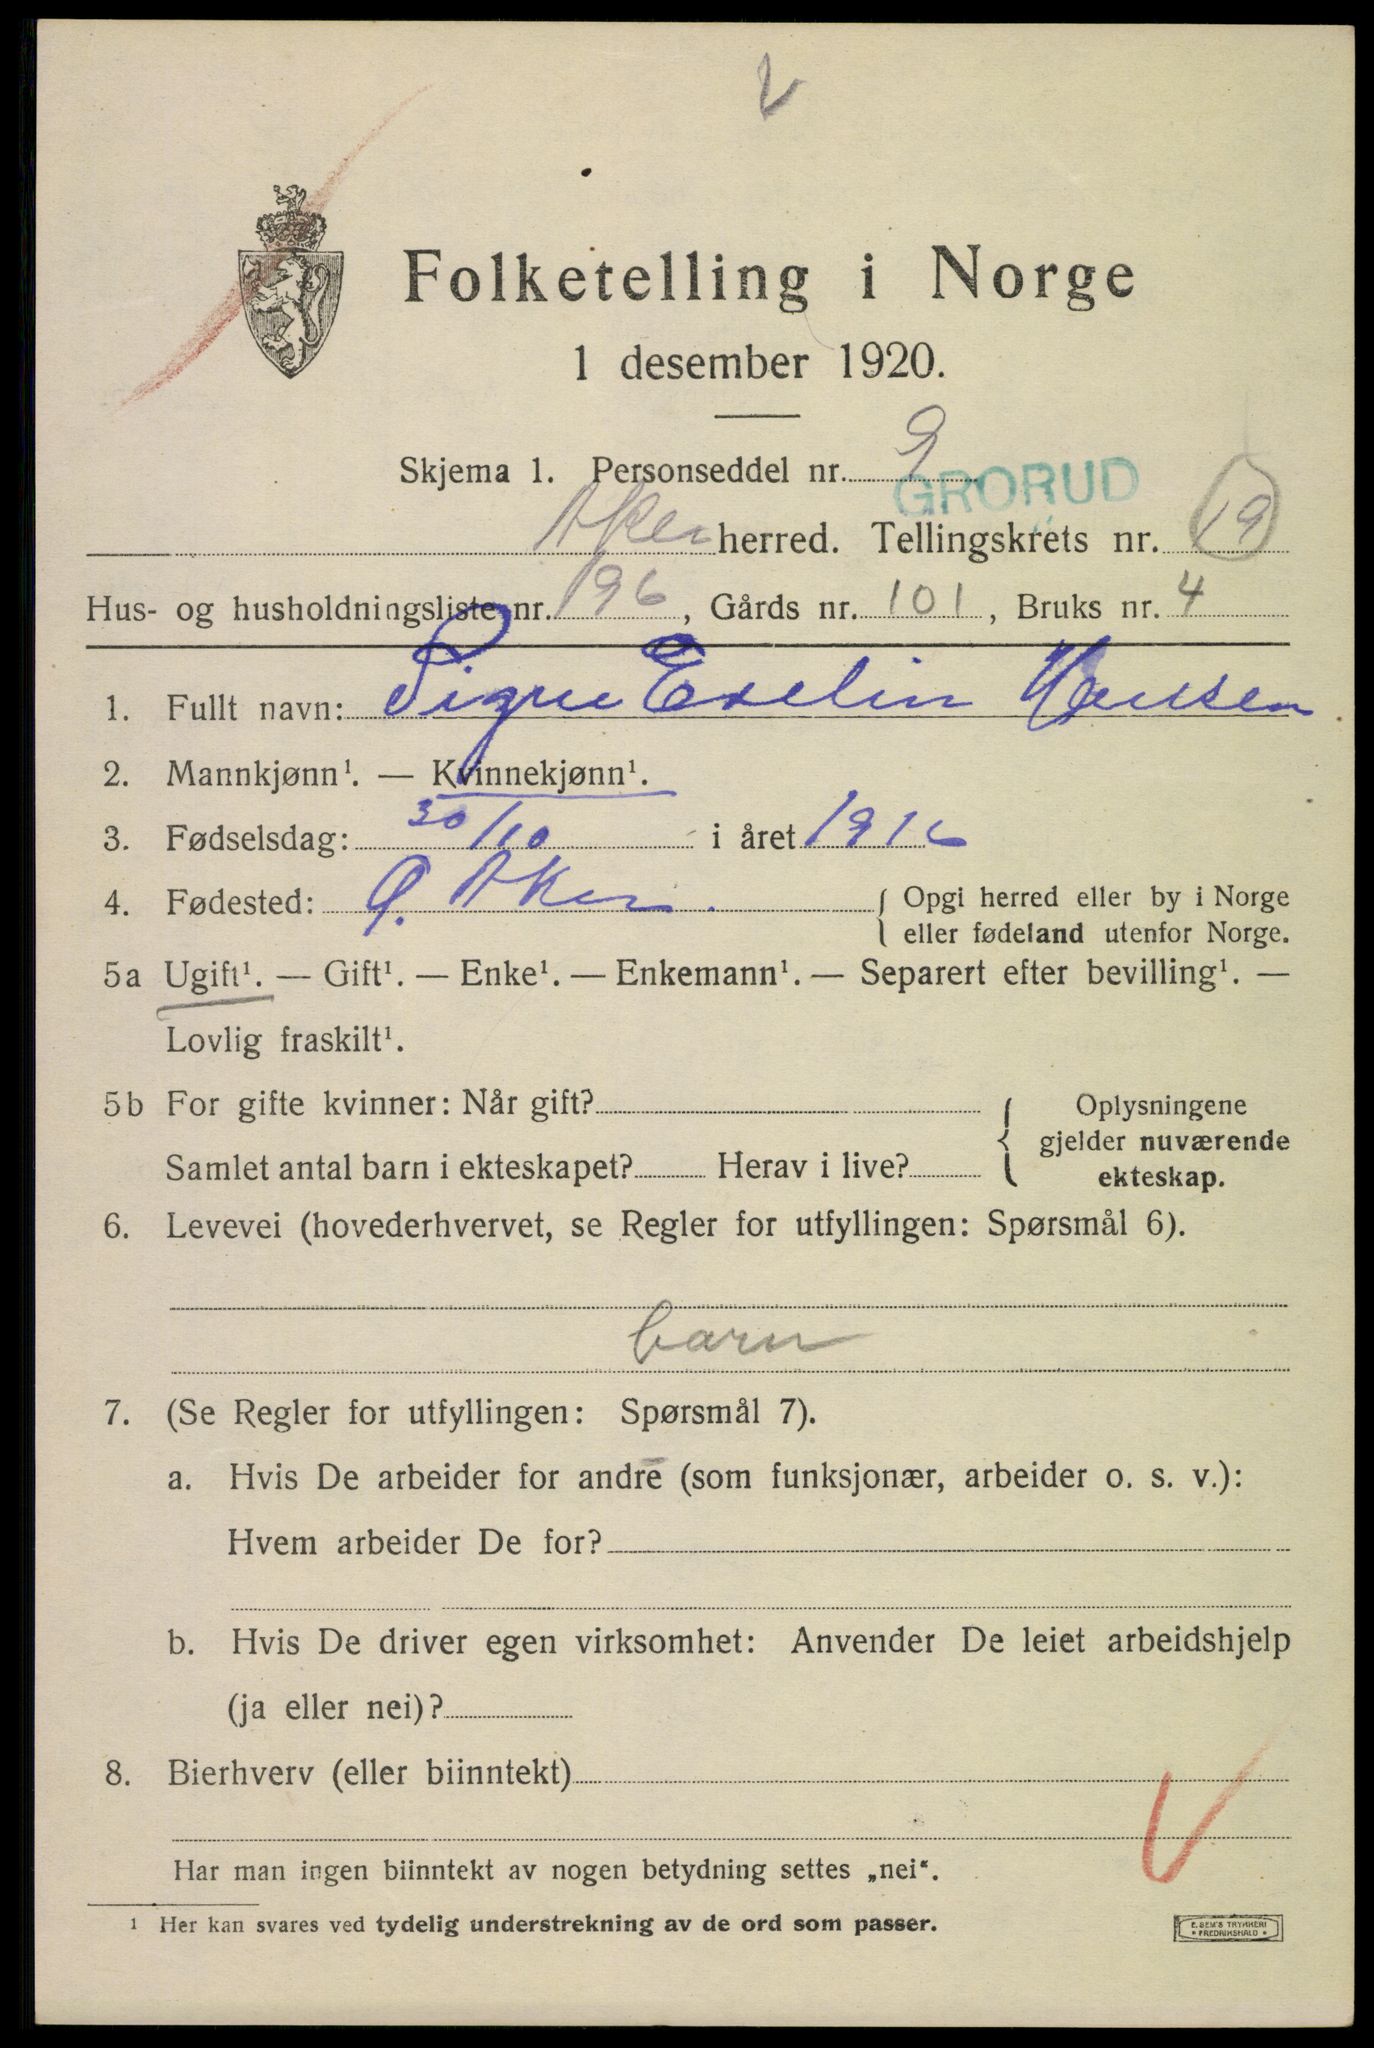 V
Folketelling i Norge
1 desember 1920.
Skjema 1. Personseddel nr. 9
GRORUD
Aker herred. Tellingskrets nr. 19
Hus- og husholdningsliste nr. 196, Gårds nr. 101, Bruks nr. 4
1. Fullt navn: Signe Evelin Hansen
2. Mannkjønn¹. — Kvinnekjønn¹.
3. Fødselsdag: 30/10 i året 1916
4. Fødested: Ø. Aker. { Opgi herred eller by i Norge
eller fødeland utenfor Norge.
5a Ugift¹. — Gift¹. — Enke¹. — Enkemann¹. — Separert efter bevilling¹. —
Lovlig fraskilt¹.
5b For gifte kvinner: Når gift?
Samlet antal barn i ekteskapet? Herav i live?
{ Oplysningene
gjelder nuværende
ekteskap.
6. Levevei (hovederhvervet, se Regler for utfyllingen: Spørsmål 6).
barn
7. (Se Regler for utfyllingen: Spørsmål 7).
a. Hvis De arbeider for andre (som funksjonær, arbeider o. s. v.):
Hvem arbeider De for?
b. Hvis De driver egen virksomhet: Anvender De leiet arbeidshjelp
(ja eller nei)?
8. Bierhverv (eller biinntekt)
Har man ingen biinntekt av nogen betydning settes „nei“.
¹ Her kan svares ved tydelig understrekning av de ord som passer.
E. SEM'S TRYKKERI
* FREDRIKSHALD *